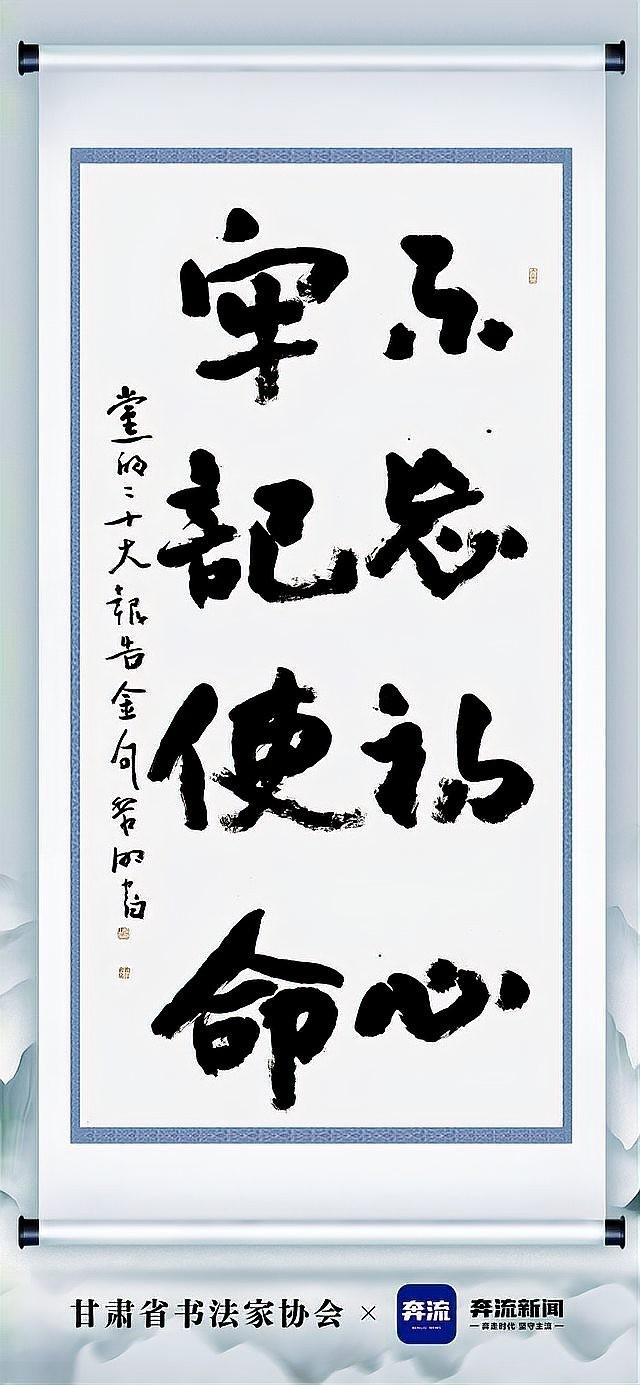 不忘初心
牢記使命
黨的二十大報告金句 書
甘肃省书法家协会 × 奔流 奔流新闻
BENLIU NEWS
奔走时代 坚守主流